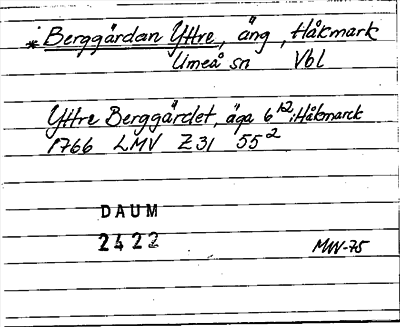 * Berggärdan Yttre, äng, Håkmark
Umeå sn Vbl
Yttre Berggärdet, äga 6 h2 i Håkmarck
1766 LMV Z31 55²
DAUM
2422
MW-75